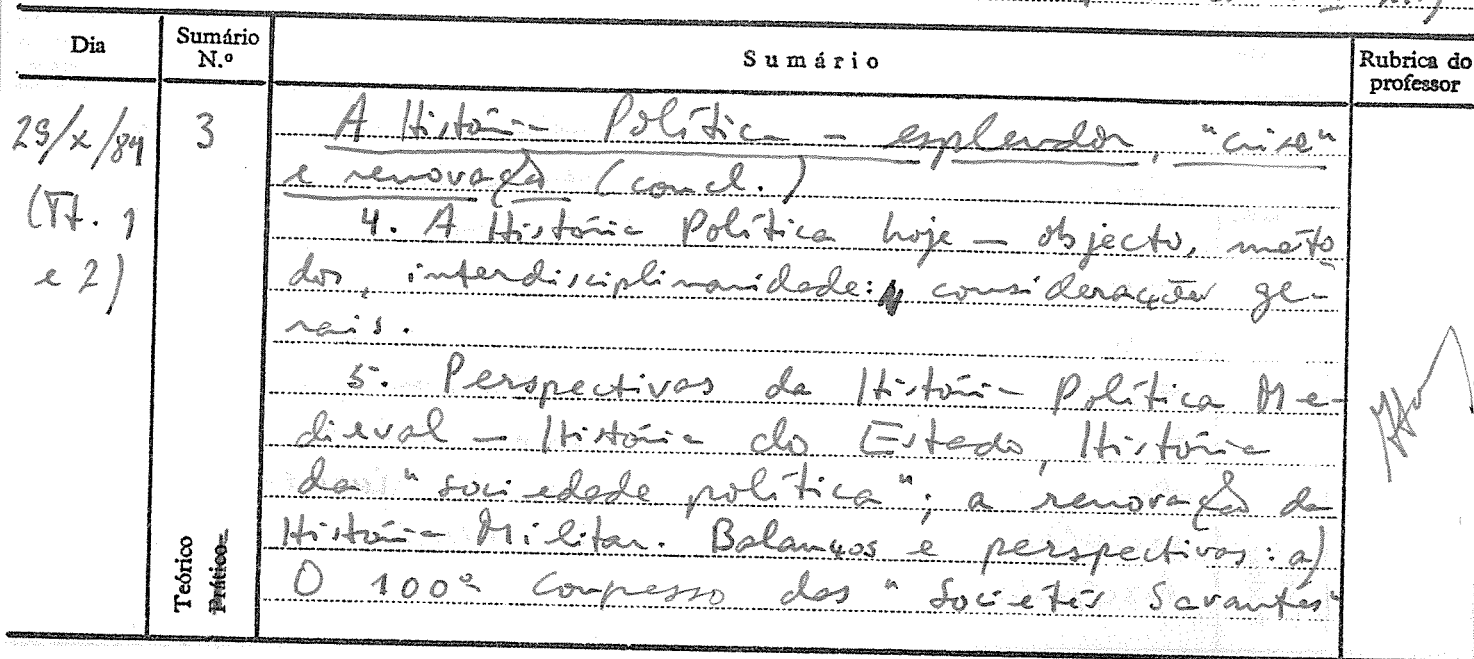 Dia
Sumário N.º
Sumário
Rubrica do professor
29/X/84
(Tt. 1
e 2)
3
A História Política – esplendor, "crise"
e renovação (concl.)
4. A História Política hoje – objecto, méto
dos, interdisciplinaridade: considerações ge-
rais.
5. Perspectivas da História Política Me-
dieval – História do Estado, História
da "sociedade política"; a renovação da
História Militar. Balanços e perspectivas: a)
O 100º Congresso das "Societés Savantes"
Teórico
Prático